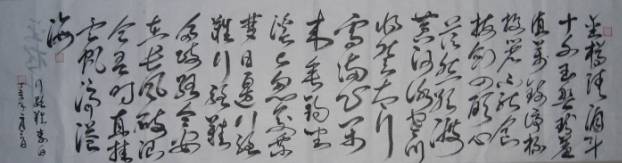 金樽清酒斗
十千玉盘珍羞
直万钱停杯
投箸不能食
拔剑四顾心
茫然欲渡
黄河冰塞川
将登太行
雪满山闲
来垂钓坐
溪上忽复乘舟
梦日边行路
难行路难
多歧路今安
在长风破浪
会有时直挂
云帆济沧
海
行路难李白